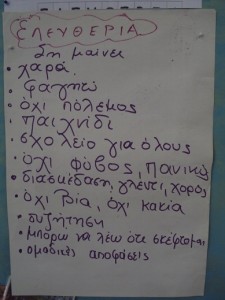 ΕΛΕΥΘΕΡΙΑ
ση μαίνει
• χαρά
• φαγητό
• όχι πόλεμος
• παιχνίδι
• σχολείο για όλους
• όχι φόβος, πανικός
• διασκέδαση, γλέντι, χορός
• όχι βία, όχι κακία
• συζήτηση
• μπορώ να λέω ότι σκέφτομαι
• ομαδικές αποφάσεις